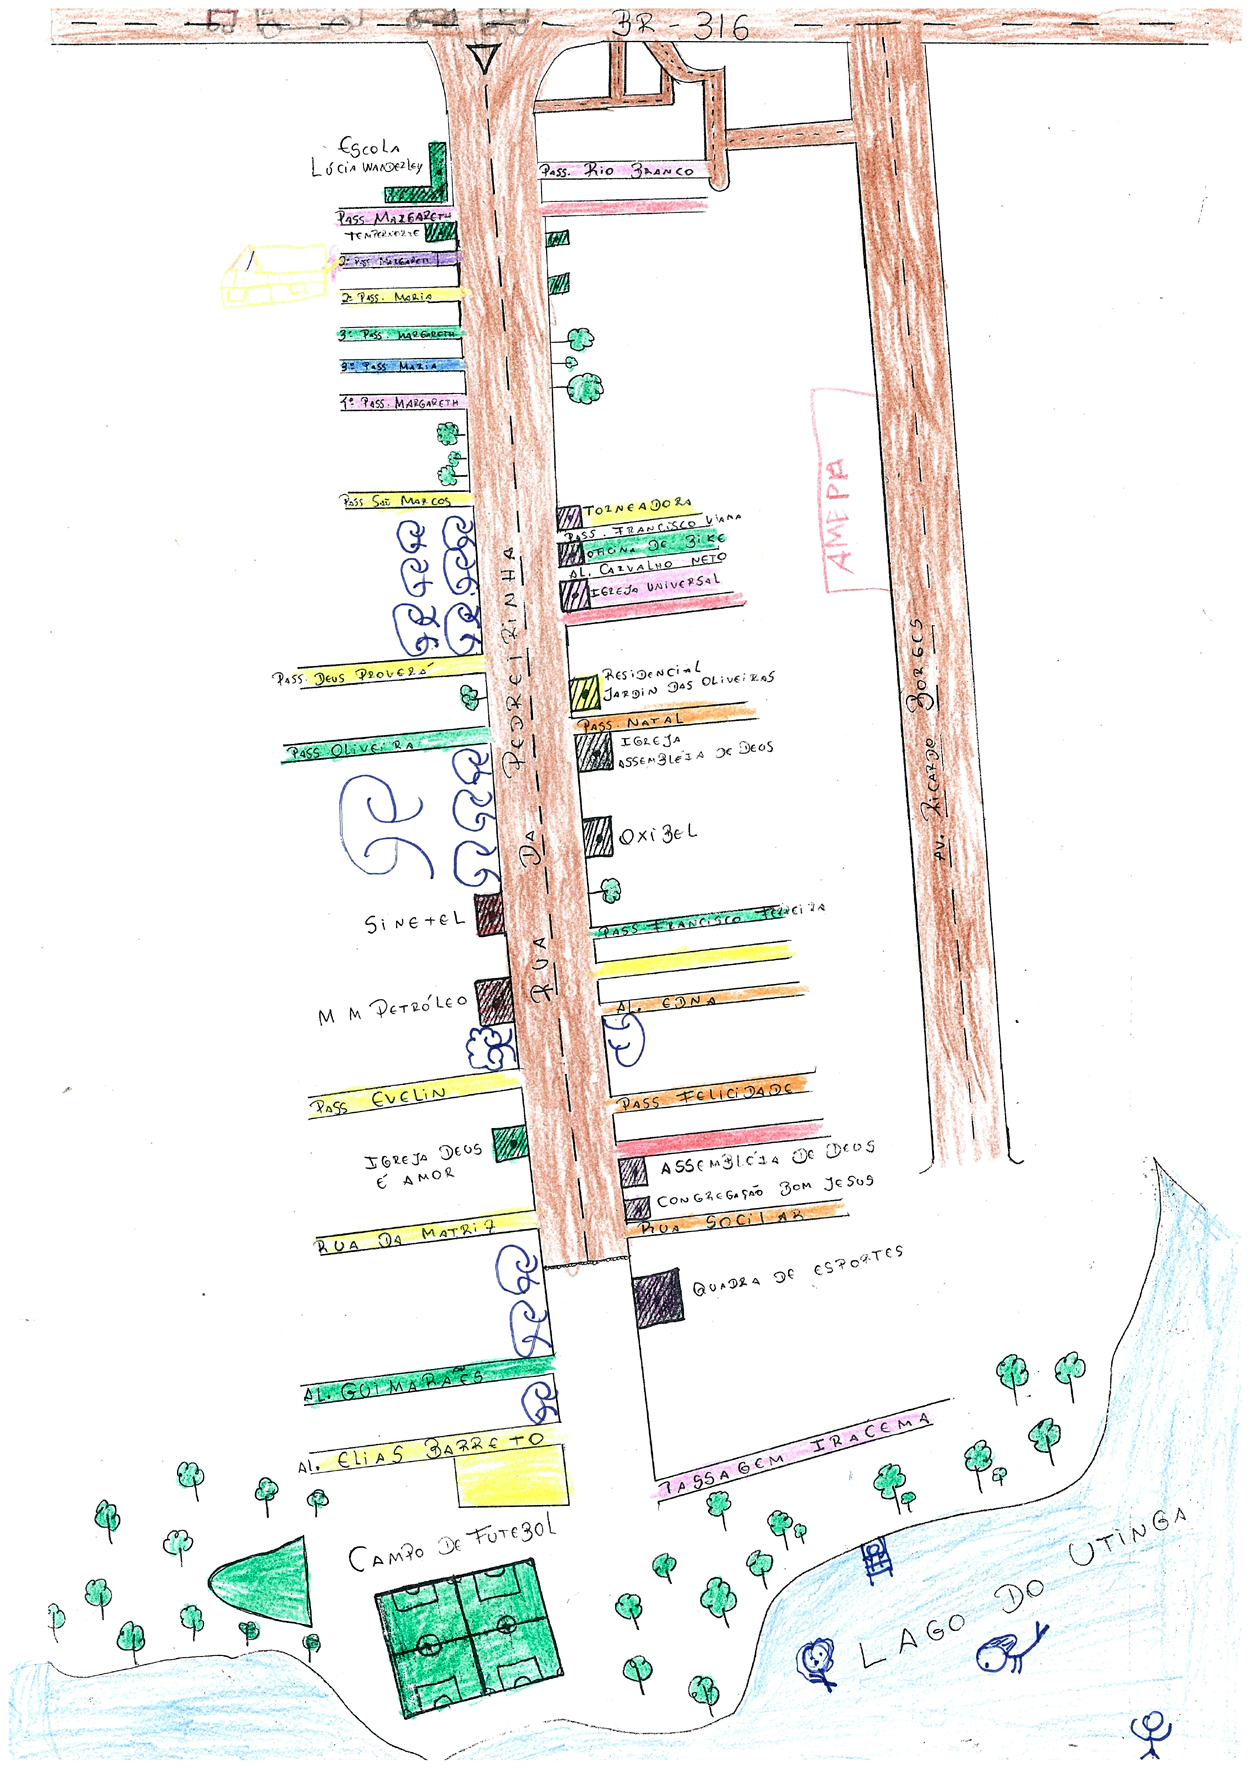 BR - 316
ESCOLA
LÚCIA WANDERLEY
PASS. RIO BRANCO
PASS. MARGARETH
2ª PASS. MARGARETH
2ª PASS. MARIA
3ª PASS. MARGARETH
3ª PASS MARIA
4ª PASS. MARGARETH
PASS SÃO MARCOS
TORNEADORA
PASS. FRANCISCO VIANA
OFICINA DE BIKE
AL. CARVALHO NETO
IGREJA UNIVERSAL
AMEPA
PASS. DEUS PROVERÁ
RESIDENCIAL
JARDIN DAS OLIVEIRAS
PASS. NATAL
PASS OLIVEIRA
IGREJA
ASSEMBLÉIA DE DEUS
OXIBEL
RUA DA PEDREIRINHA
AV. RICARDO BORGES
SINETEL
PASS FRANCISCO FERREIRA
M M PETRÓLEO
AL. EDNA
PASS EVELIN
PASS FELICIDADE
IGREJA DEUS
É AMOR
ASSEMBLÉIA DE DEUS
CONGREGAÇÃO BOM JESUS
RUA DA MATRIZ
RUA SOCILAR
QUADRA DE ESPORTES
AL. GUIMARÃES
AL. ELIAS BARRETO
PASSAGEM IRACEMA
CAMPO DE FUTEBOL
LAGO DO UTINGA